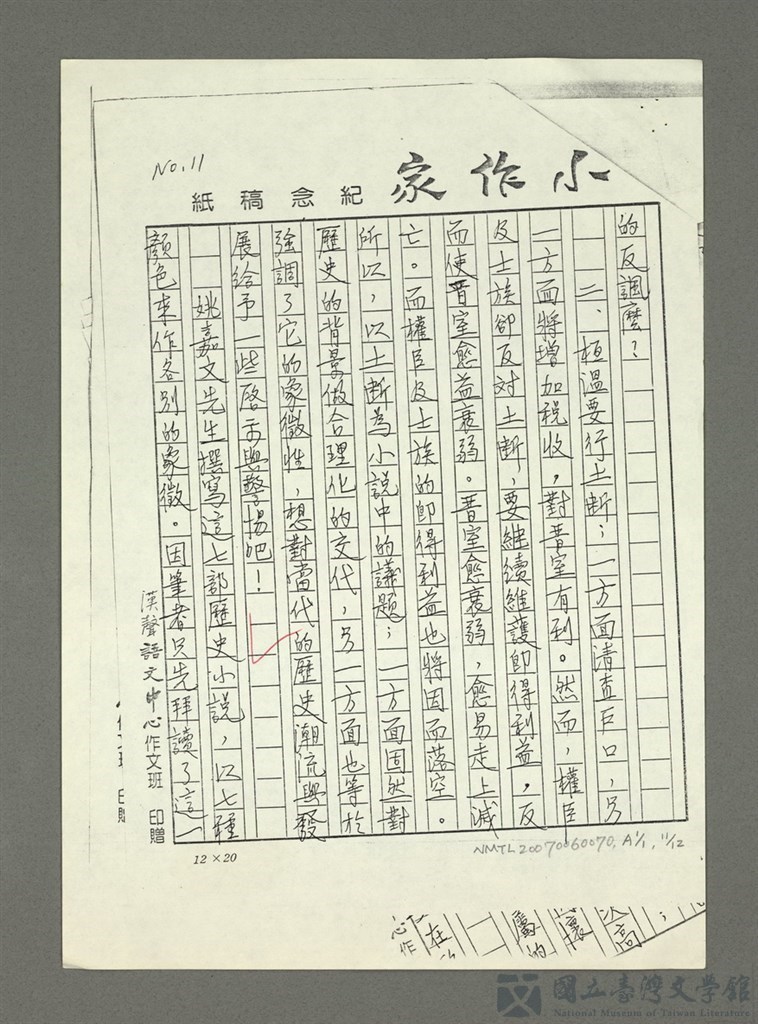 No.11
小作家
紀念稿紙
的反調麼？
二、桓溫要行土斷；一方面清查戶口，另
一方面將增加稅收，對晋室有利。然而，權臣
及士族卻反對土斷，要繼續維護即得利益，反
而使晋室愈益衰弱。晋室愈衰弱，愈易走上滅
亡。而權臣及士族的即得利益也將因而落空。
所以，以土斷為小說中的議題；一方面固然對
歷史的背景做合理化的交代，另一方面也等於
強調了它的象徵性，想對當代的歷史潮流與發
展給予一些啓示與警惕吧！
姚嘉文先生撰寫這七部歷史小說，以七種
顏色來作各別的象徵。因筆者只先拜讀了這一
漢聲語文中心作文班 印贈
12×20
NMTL20070060070, A1/1, 11/12
高
壤
屬的
在
心作
國立臺灣文學館
National Museum of Taiwan Literature